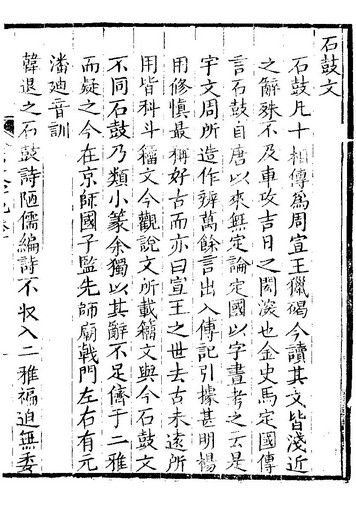 石鼓文
石鼓凡十相傳爲周宣王獵碣今讀其文皆淺近
之辭殊不及車攻吉日之閎深也金史馬定國傳
言石鼓自唐以來無定論定國以字畫考之云是
宇文周所造作辨萬餘言出入傳記引據甚明楊
用修慎最稱好古而亦曰宣王之世去古未遠所
用皆科斗籀文今觀說文所載籀文與今石鼓文
不同石鼓乃類小篆余獨以其辭不足儕于二雅
而疑之今在京師國子監先師廟戟門左右有元
潘迪音訓
韓退之石鼓詩陋儒編詩不收入二雅褊迫無委